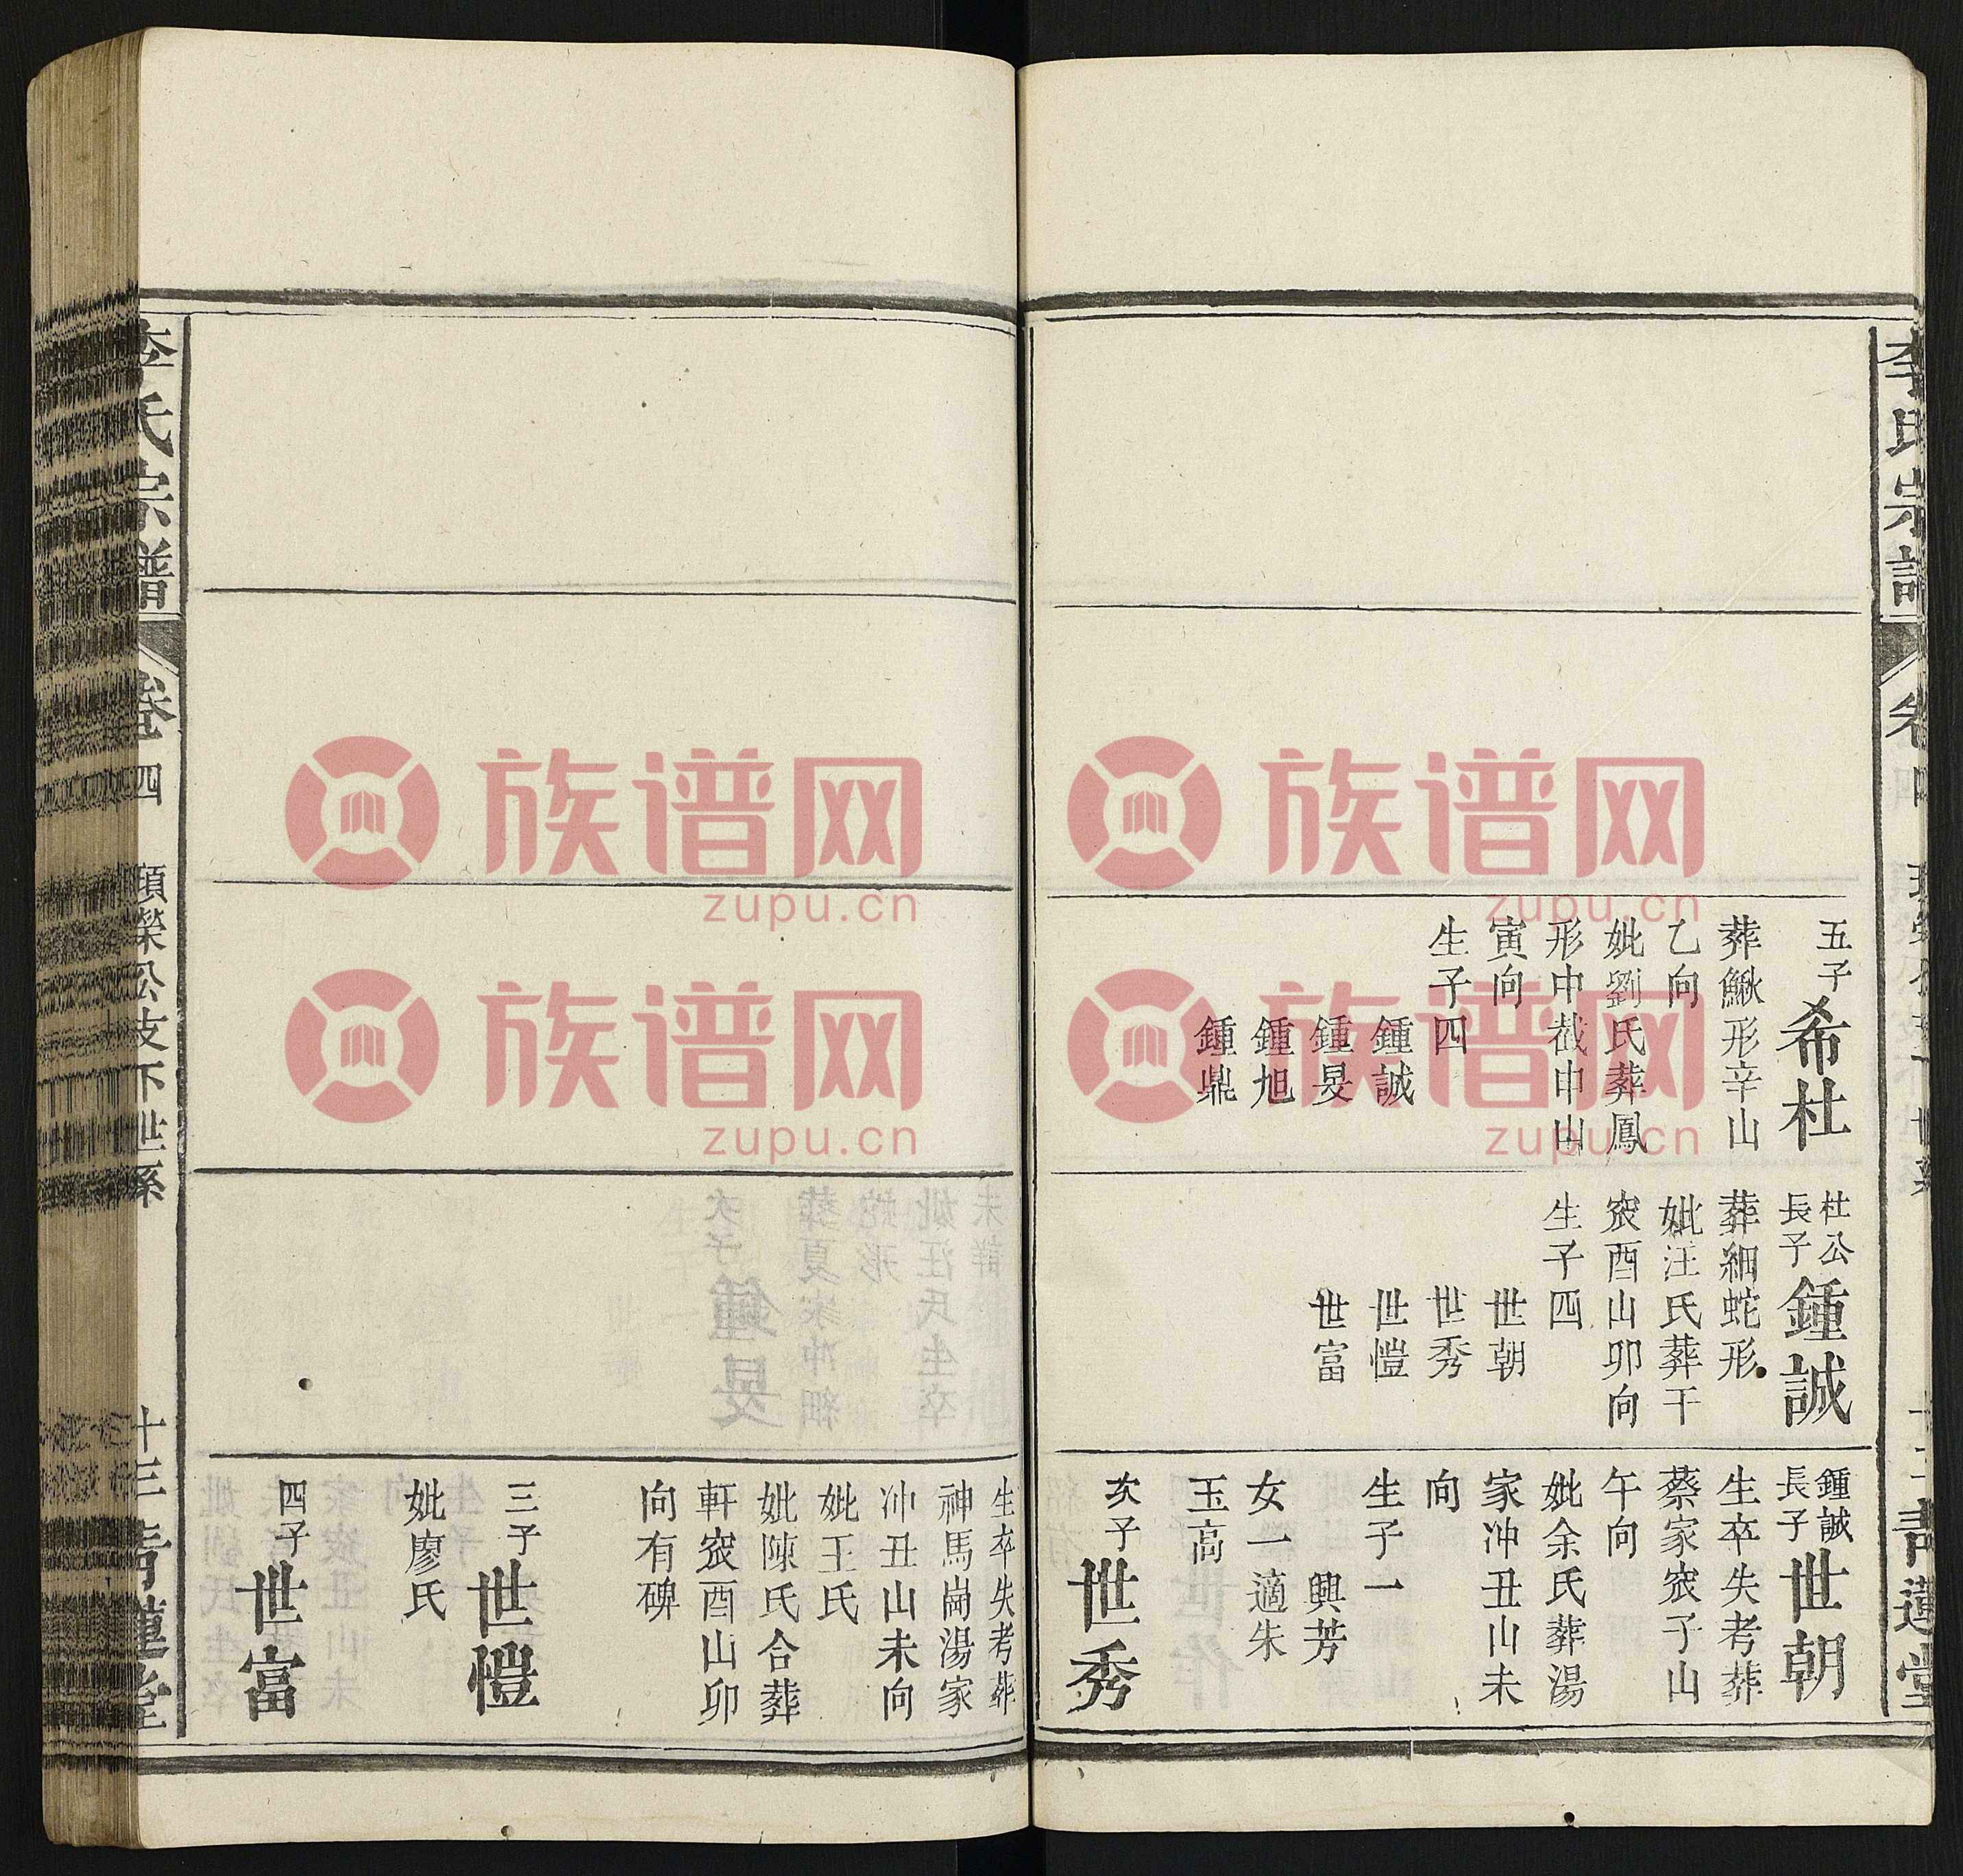 李氏宗譜
五子
希杜
葬鰍形辛山
乙向
妣劉氏葬鳳
形中截申山
寅向
生子四
鍾誠
鍾旻
鍾旭
鍾鼎
杜公
長子
鍾誠
葬細蛇形
妣汪氏葬干
䆲酉山卯向
生子四
世朝
世秀
世愷
世富
鍾誠
長子
世朝
生卒失考葬
蔡家䆲子山
午向
妣余氏葬湯
家冲丑山未
向
生子一
興芳
女一適朱
玉高
次子
世秀
生卒失考葬
神馬崗湯家
冲丑山未向
妣王氏
妣陳氏合葬
軒䆲酉山卯
向有碑
三子
世愷
妣廖氏
四子
世富
李氏宗譜
卷四
頭榮公支下世系
十三
青蓮堂
族谱网
zupu.cn
族谱网
zupu.cn
族谱网
zupu.cn
族谱网
zupu.cn